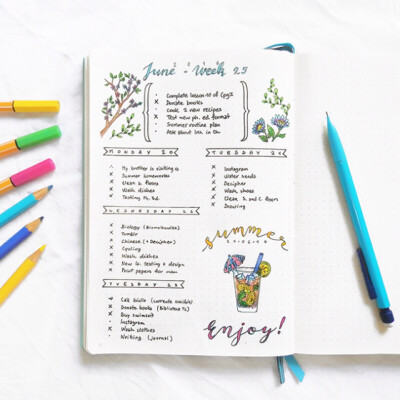 June - Week 25
Complete lesson 10 of
Donate books
Cook 2 new recipes
Test new ph. ed format
Summer routine plan
Ask about
MONDAY 20
My brother is visiting
Summer homeworks
Clean 2. floors
Wash dishes
Testing Ph. Ed.
TUESDAY 21
Instagram
Water seeds
Decipher
Wash shoes
Clean 2. and C floors
WEDNESDAY
Biology (Biomolecules)
Tumblr
Chinese (+ Decipher)
Cycling
Wash dishes
New testing + design
Print papers for mum
summer
Call
Donate books (Biblioteca
Buy swimsuit
Instagram
Wash clothes
Writing (journal)
Enjoy!